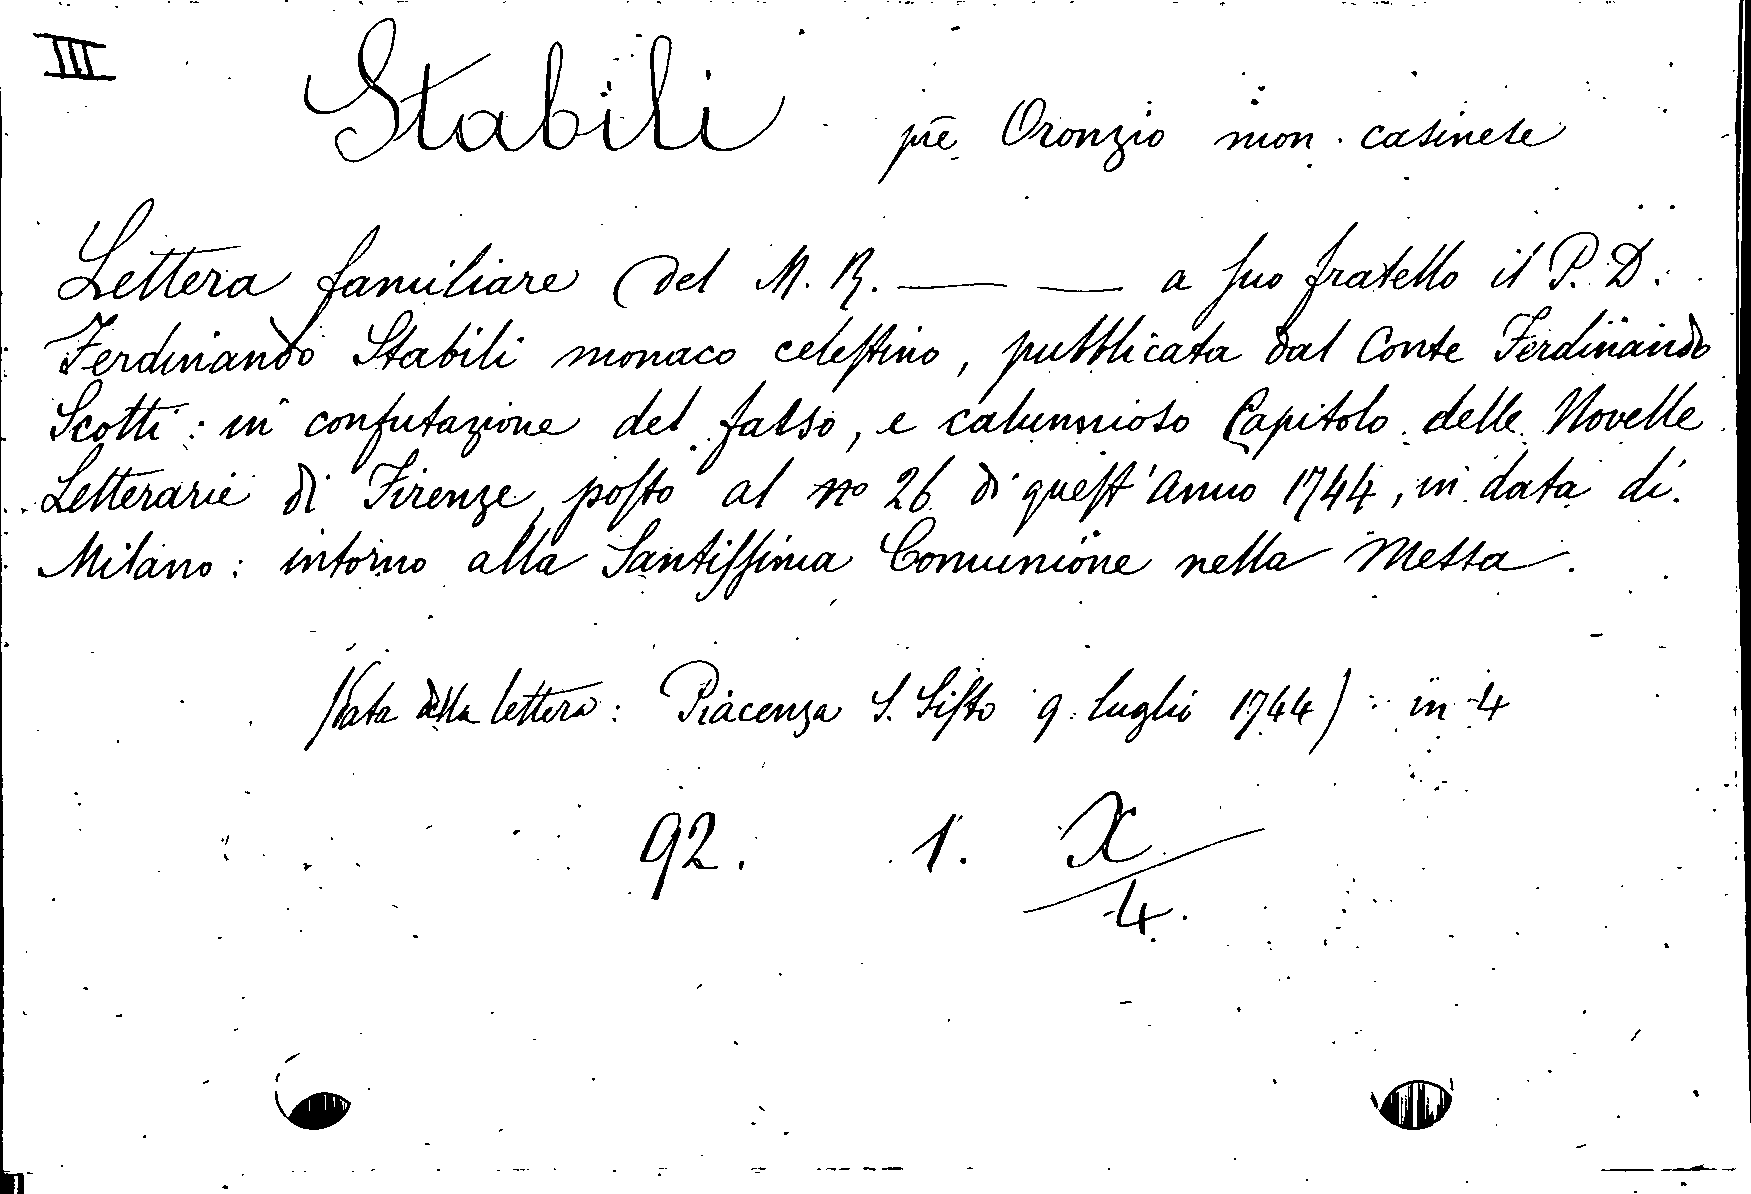 III
Stabili prē Oronzio mon. casinese
Lettera familiare del M. R. —— —— a suo fratello il P. D.
Ferdinando Stabili monaco celestino, pubblicata dal Conte Ferdinando
Scotti: in confutazione del falso, e calunnioso Capitolo delle Novelle
Letterarie di Firenze, posto al no 26 di quest'anno 1744, in data di
Milano: intorno alla Santissima Comunione nella Messa.
(Data della lettera: Piacenza S. Sisto 9 luglio 1744) in 4
92. 1. X
4.